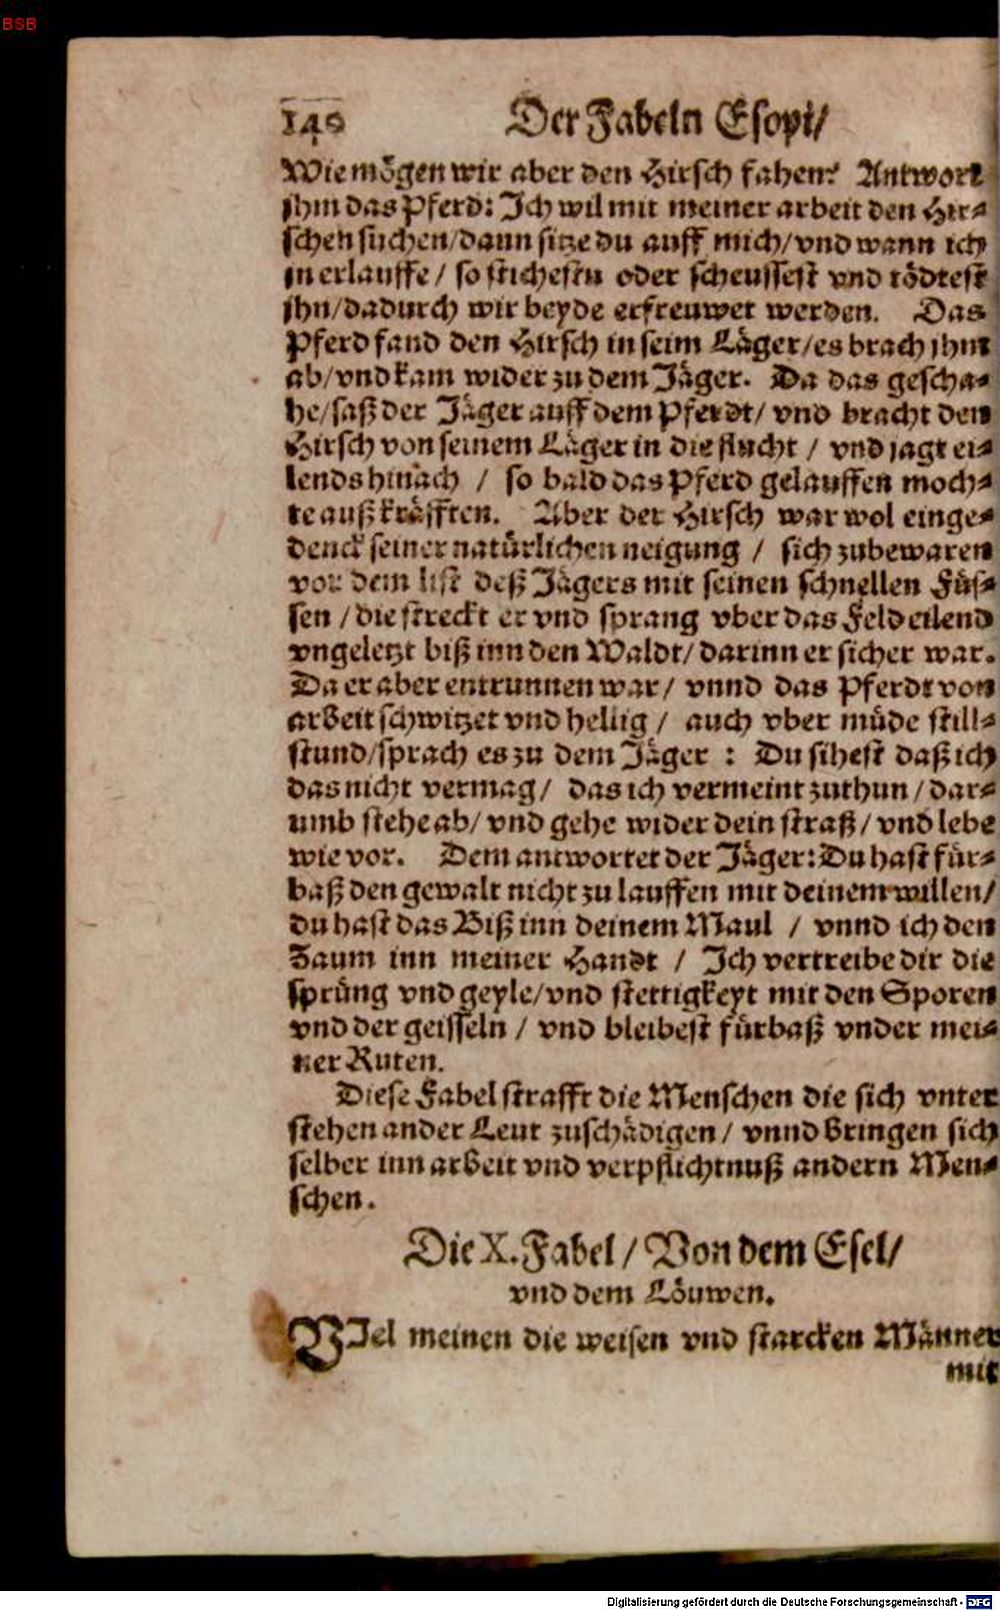 BSB
140 Der Fabeln Esopi/
Wie mögen wir aber den Hirsch fahen? Antwort
jhm das Pferd: Ich wil mit meiner arbeit den Hir⸗
schen suchen/dann sitze du auff mich/vnd wann ich
jn erlauffe / so stichestu oder scheussest vnd tödtest
jhn/dadurch wir beyde erfreuwet werden. Das
Pferd fand den Hirsch in seim Läger/es brach jhm
ab/vnd kam wider zu dem Jäger. Da das gescha⸗
he/saß der Jäger auff dem Pferdt/ vnd bracht den
Hirsch von seinem Läger in die flucht / vnd jagt ei⸗
lends hinach / so bald das Pferd gelauffen moch⸗
te auß kräfften. Aber der Hirsch war wol einge⸗
denck seiner natürlichen neigung / sich zubewaren
vor dem list deß Jägers mit seinen schnellen Füs⸗
sen / die streckt er vnd sprang vber das Feld eilend
vngeletzt biß inn den Waldt/ darinn er sicher war.
Da er aber entrunnen war/ vnnd das Pferdt von
arbeit schwitzet vnd hellig / auch vber müde still⸗
stund/sprach es zu dem Jäger : Du sihest daß ich
das nicht vermag/ das ich vermeint zuthun / dar⸗
umb stehe ab/ vnd gehe wider dein straß/ vnd lebe
wie vor. Dem antwortet der Jäger: Du hast für⸗
baß den gewalt nicht zu lauffen mit deinem willen/
du hast das Biß inn deinem Maul / vnnd ich den
Zaum inn meiner Handt / Ich vertreibe dir die
sprüng vnd geyle/vnd stettigkeyt mit den Sporen
vnd der geisseln / vnd bleibest fürbaß vnder mei⸗
ner Ruten.
Diese Fabel strafft die Menschen die sich vnter
stehen ander Leut zuschädigen/ vnnd bringen sich
selber inn arbeit vnd verpflichtnuß andern Men⸗
schen.
Die X. Fabel / Von dem Esel/
vnd dem Löuwen.
VIel meinen die weisen vnd starcken Männer
mit
Digitalisierung gefördert durch die Deutsche Forschungsgemeinschaft - DFG